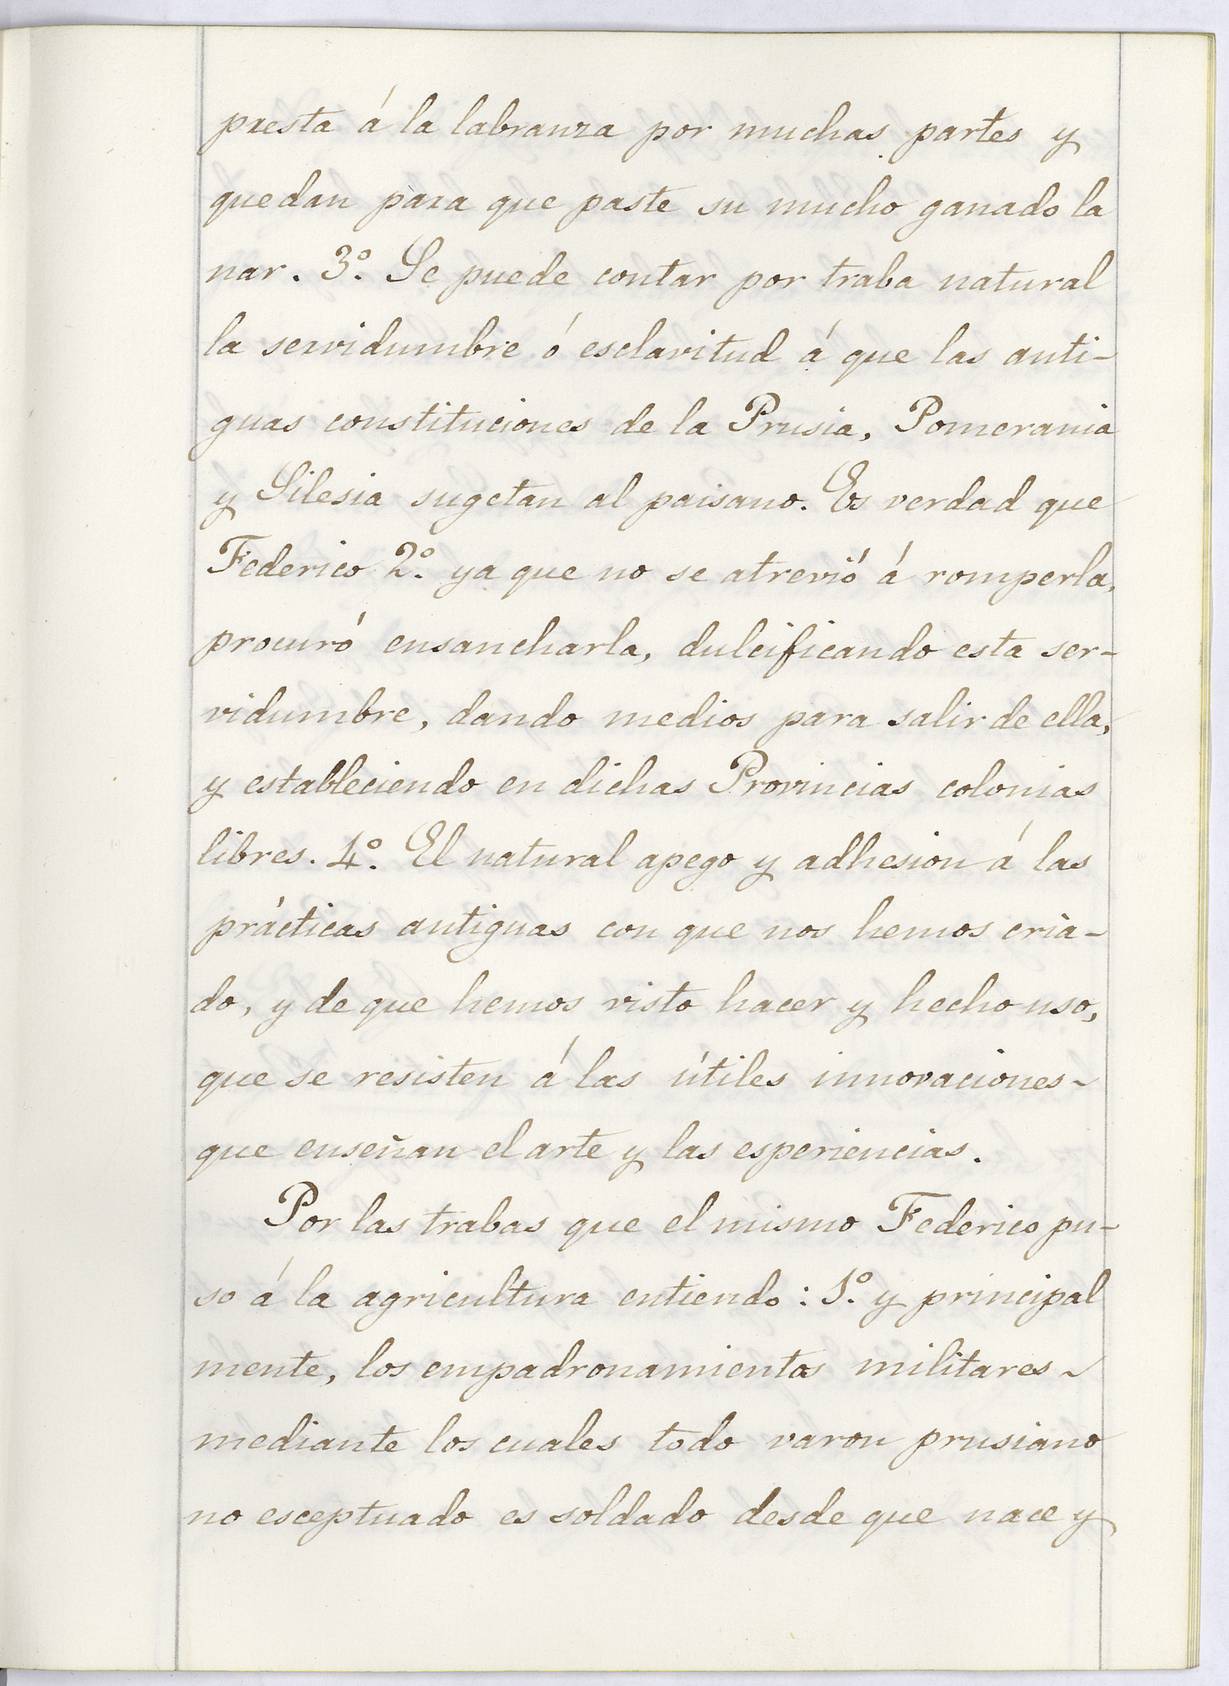 presta á la labranza por muchas partes y
quedan para que paste su mucho ganado la
nar. 3º. Se puede contar por traba natural
la servidumbre ó esclavitud á que las anti-
guas constituciones de la Prusia, Pomerania
y Silesia sugetan al paisano. Es verdad que
Federico 2º. ya que no se atrevió á romperla,
procuró ensancharla, dulcificando esta ser-
vidumbre, dando medios para salir de ella,
y estableciendo en dichas Provincias colonias
libres. 4º. El natural apego y adhesion á las
prácticas antiguas con que nos hemos cria-
do, y de que hemos visto hacer y hecho uso,
que se resisten á las útiles innovaciones-
que enseñan el arte y las esperiencias.
Por las trabas que el mismo Federico pu-
so á la agricultura entiendo: 1º. y principal
mente, los empadronamientos militares-
mediante los cuales todo varon prusiano
no esceptuado es soldado desde que nace y